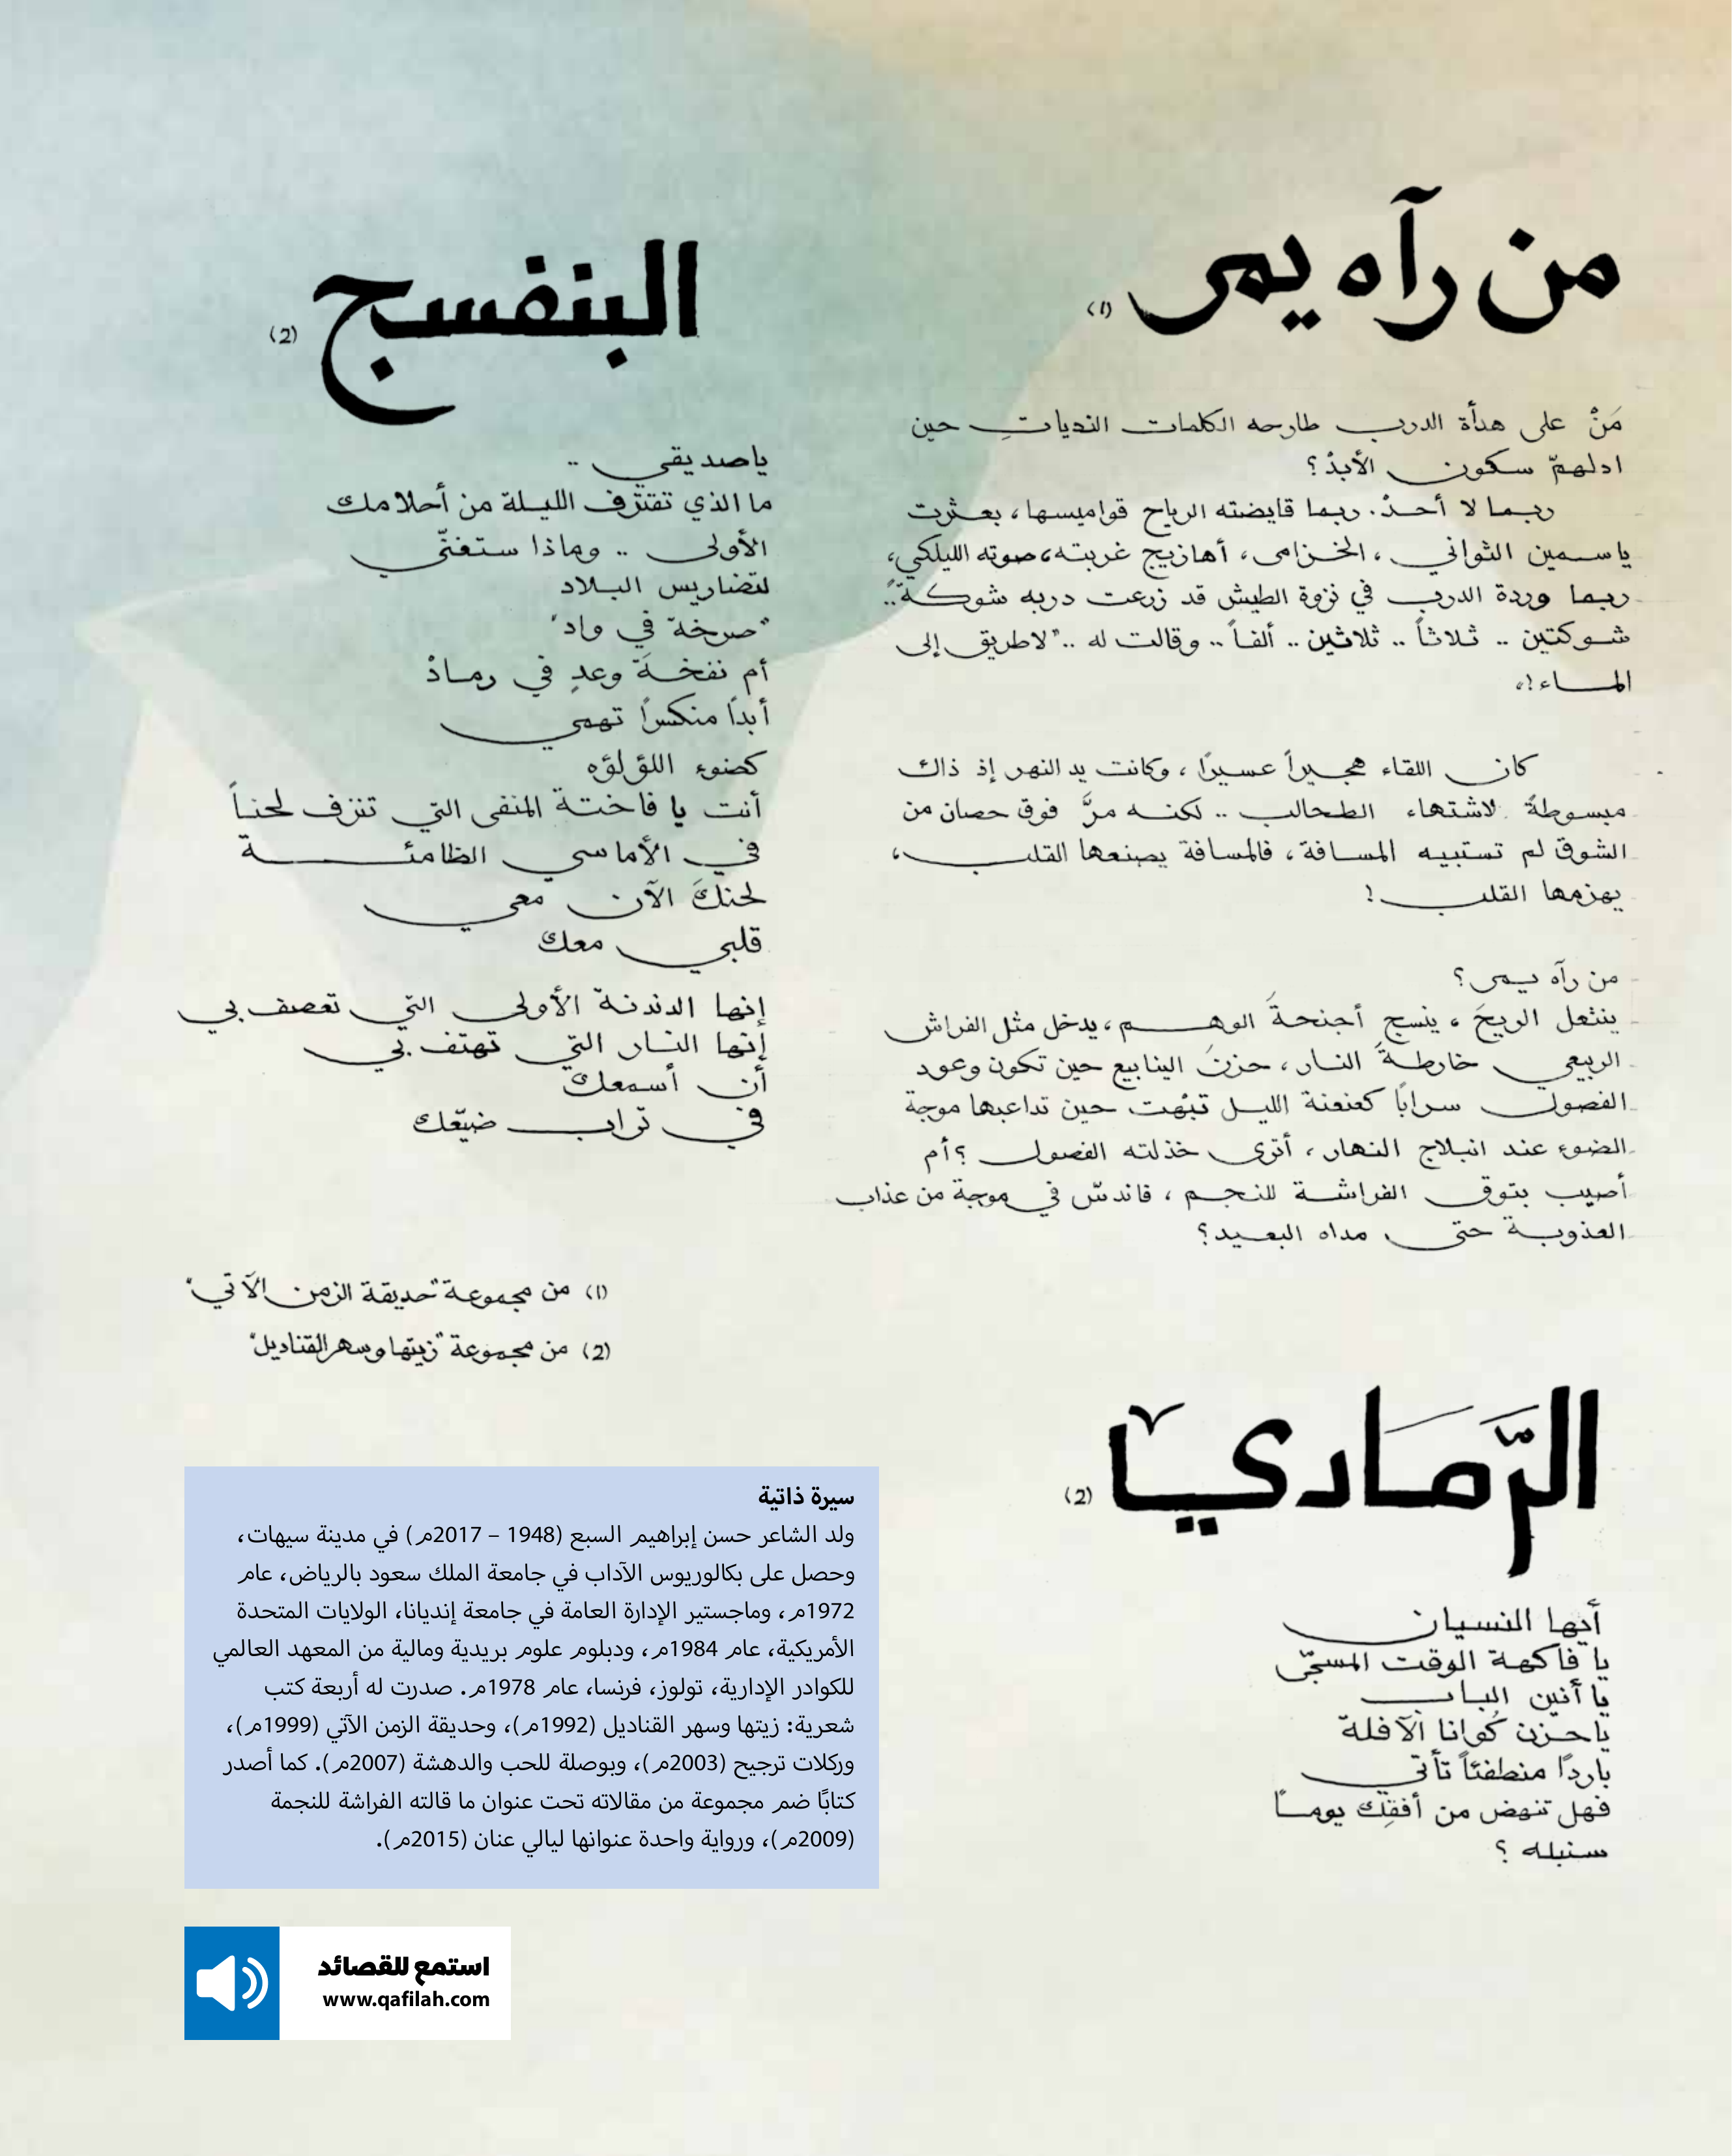 من رآه يمر (1)
مَنْ على هدأة الدرب طارحه الكلمات الندياتِ حين
ادلهمّ سكون الأبدْ؟
ربما لا أحدْ. ربما قايضته الرياح قواميسها، بعثرت
ياسمين الثواني، الخزامى، أهازيج غربته، صوته الليلكي،
ربما وردة الدرب في نزوة الطيش قد زرعت دربه شوكةً..
شوكتين .. ثلاثاً .. ثلاثين .. ألفاً .. وقالت له .. "لا طريق إلى
الماء!"
كان اللقاء هجيراً عسيرًا، وكانت يد النهر إذ ذاك
مبسوطةً لاشتهاء الطحالب .. لكنه مرَّ فوق حصان من
الشوق لم تستبيه المسافة، فالمسافة يصنعها القلب،
يهزمها القلب!
من رآه يمر؟
ينتعل الريحَ، ينسج أجنحةَ الوهم، يدخل مثل الفراش
الربيعي خارطةَ النار، حزنَ الينابيع حين تكون وعود
الفصول سرابًا كعنعنة الليل تبْهت حين تداعبها موجة
الضوء عند انبلاج النهار، أترى خذلته الفصول؟ أم
أصيب بتوق الفراشة للنجم، فاندسّ في موجة من عذاب
العذوبة حتى مداه البعيد؟
البنفسج (2)
ياصديقي ..
ما الذي تقترف الليلة من أحلامك
الأولى .. وماذا ستغنّي
لتضاريس البلاد
"صرخة في واد"
أم نفخةَ وعدٍ في رمادْ
أبدًا منكسرًا تهمي
كضوء اللؤلؤه
أنت يا فاختة المنفى التي تنزف لحناً
في الأماسي الظامئة
لحنكَ الآن معي
قلبي معك
إنها الدندنة الأولى التي تعصف بي
إنها النار التي تهتف بي
أن أسمعك
في تراب ضيّعك
(1) من مجموعة "حديقة الزمن الآتي"
(2) من مجموعة "زيتها وسهر القناديل"
الرَّمَادي (2)
أيها النسيان
يا فاكهة الوقت المسجّى
يا أنين الباب
يا حزن كُوانا الآفلة
باردًا منطفئاً تأتي
فهل تنهض من أفقِك يومًا
سنبله ؟
سيرة ذاتية
ولد الشاعر حسن إبراهيم السبع (1948 – 2017م) في مدينة سيهات،
وحصل على بكالوريوس الآداب في جامعة الملك سعود بالرياض، عام
1972م، وماجستير الإدارة العامة في جامعة إنديانا، الولايات المتحدة
الأمريكية، عام 1984م، ودبلوم علوم بريدية ومالية من المعهد العالمي
للكوادر الإدارية، تولوز، فرنسا، عام 1978م. صدرت له أربعة كتب
شعرية: زيتها وسهر القناديل (1992م)، وحديقة الزمن الآتي (1999م)،
وركلات ترجيح (2003م)، وبوصلة للحب والدهشة (2007م). كما أصدر
كتابًا ضم مجموعة من مقالاته تحت عنوان ما قالته الفراشة للنجمة
(2009م)، ورواية واحدة عنوانها ليالي عنان (2015م).
استمع للقصائد
www.qafilah.com